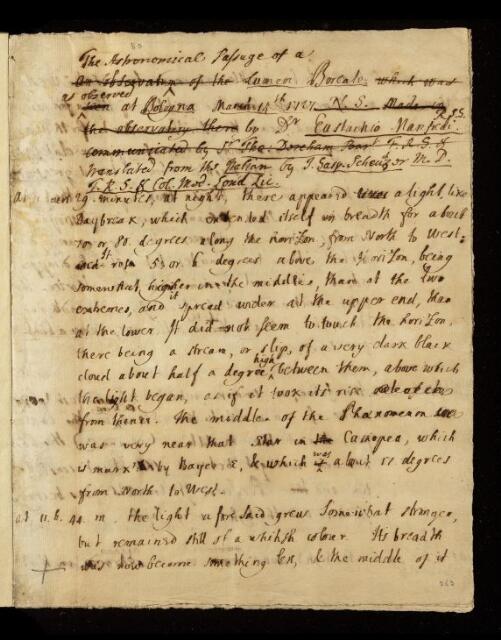 The Astronomical Passage of a
An Observation of the Lumen Boreale which was
as observed
seen at Bologna March 14th 1727 N. S. Made in
the observatory there by Dr Eustachio Manfredi. F.R.S.
communicated by Sr Tho: Dereham Baart F. R. S. &
translated from the Italian by J. Gasp. Scheuchzer M. D.
F. R. S. & Col. Med. Lond. Lic.
29 minutes, at night, there appeared a light, like
Daybreak, which extended itself in breadth for about
70 or 80 degrees along the horizon, from North to West:
it rose 5 or 6 degrees above the Horizon, being
somewhat higher in the middle, than at the two
extremes, and it spread wider at the upper end, than
at the lower. It did not seem to touch the horizon,
there being a stream, or slip, of a very dark black
cloud about half a degree high between them, above which
the light began, as if it took its rise
from thence. The middle of the Phænomenon
was very near that Star in the Casiopea, which
is mark'd by Bayer ε, & which was about 51 degrees
from North to West.
at 11. h. 44. m. the light aforesaid grew somewhat stronger,
but remained still of a whitish colour. Its breadth
was now become something less, & the middle of it
263